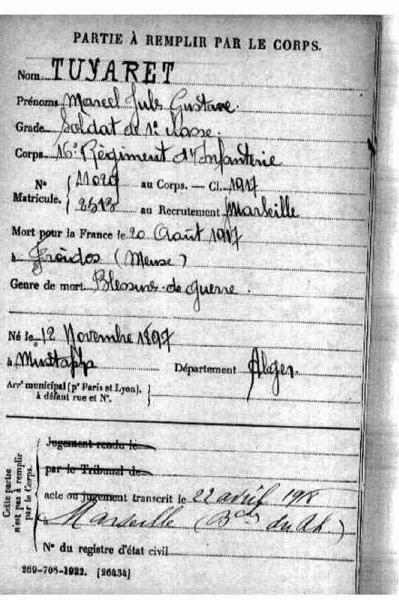 PARTIE À REMPLIR PAR LE CORPS.
Nom TUYARET
Prénoms Marcel Jules Gustave.
Grade Soldat de 1e classe.
Corps 16e Régiment d'Infanterie
N° 11029 au Corps. — Cl. 1917
Matricule. 2513 au Recrutement Marseille
Mort pour la France le 20 Août 1917
à Froidos (Meuse)
Genre de mort Blessures de guerre.
Né le 12 Novembre 1897
à Mustapha Département Alger.
Arrt municipal (pr Paris et Lyon),
à défaut rue et N°.
Cette partie
n'est pas à remplir
par le Corps.
Jugement rendu le
par le Tribunal de
acte ou jugement transcrit le 22 avril 1918
Marseille (Bches du Rh.)
N° du registre d'état civil
269-708-1922. [26434]